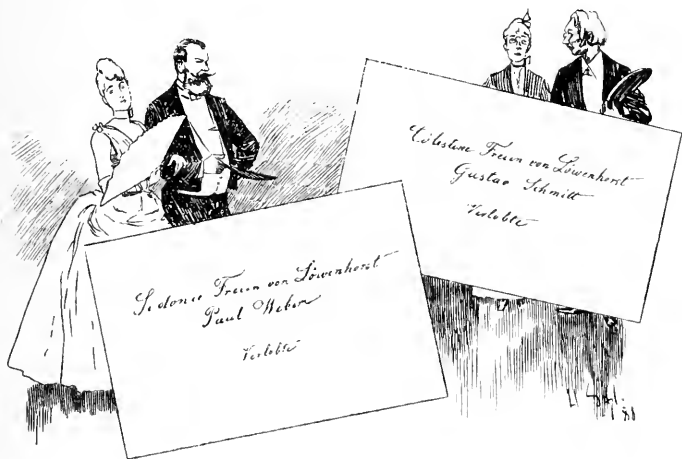 Sidonie Freiin von Löwenhorst
Paul Weber
Verlobte
Cölestine Freiin von Löwenhorst
Gustav Schmitt
Verlobte